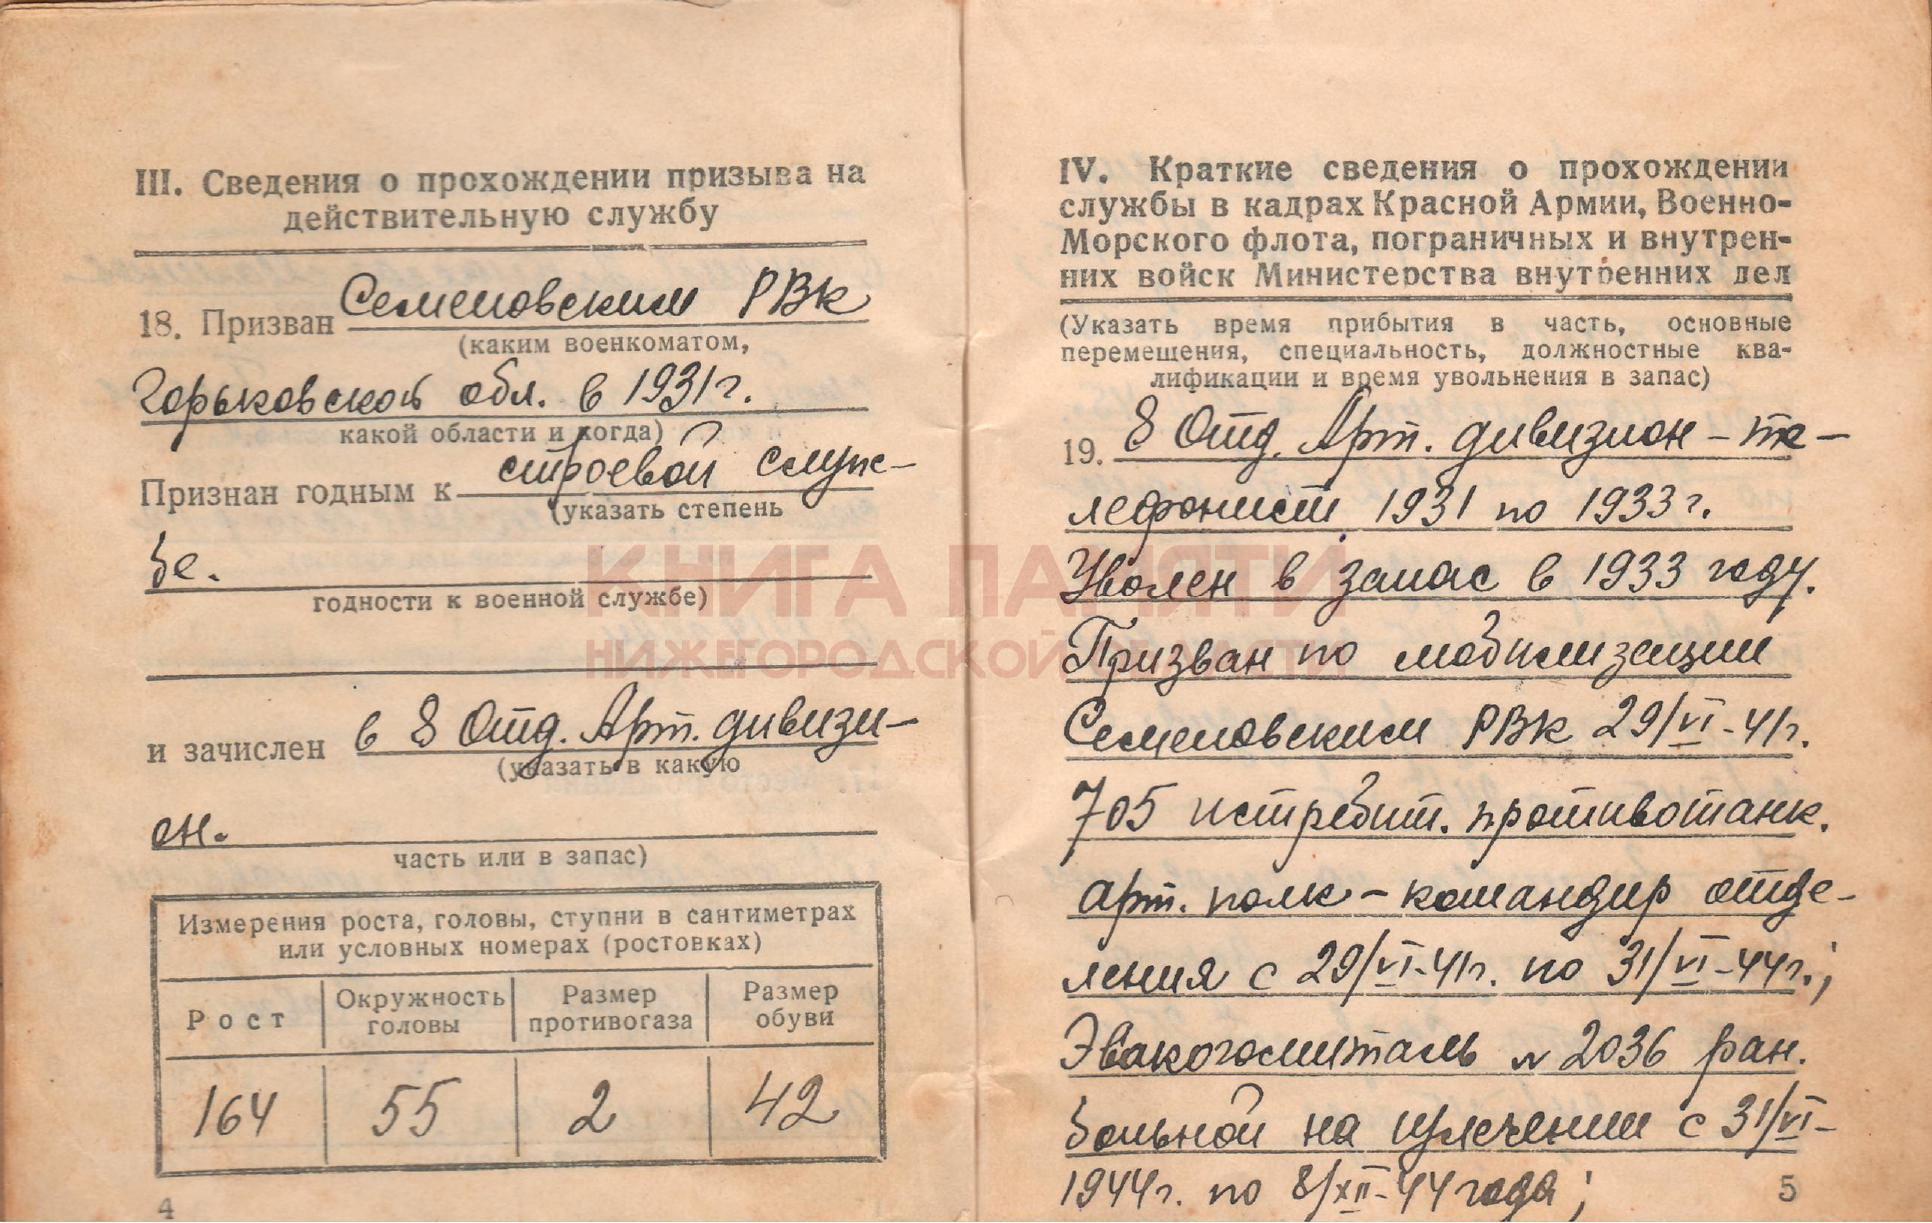 III. Сведения о прохождении призыва на
действительную службу
18. Призван Семеновским РВК
(каким военкоматом,
Горьковской обл. в 1931г.
какой области и когда)
Признан годным к строевой служ-
(указать степень
бе.
годности к военной службе)
и зачислен в 8 Отд. Арт. дивизи-
(указать в какую
он.
часть или в запас)
Измерения роста, головы, ступни в сантиметрах
или условных номерах (ростовках)
Рост Окружность головы Размер противогаза Размер обуви
164 55 2 42
4
IV. Краткие сведения о прохождении
службы в кадрах Красной Армии, Военно-
Морского флота, пограничных и внутрен-
них войск Министерства внутренних дел
(Указать время прибытия в часть, основные
перемещения, специальность, должностные ква-
лификации и время увольнения в запас)
19. 8 Отд. Арт. дивизион - те-
лефонист 1931 по 1933г.
Уволен в запас в 1933 году.
Призван по мобилизации
Семеновским РВК 29/VI-41г.
705 истребит. противотанк.
арт. полк - командир отде-
ления с 29/VI-41г. по 31/VI-44г.;
Эвакогоспиталь N 2036 ран.
больной на излечении с 31/VI-
1944г. по 8/XII-44 года;
5
КНИГА ПАМЯТИ
НИЖЕГОРОДСКОЙ ОБЛАСТИ